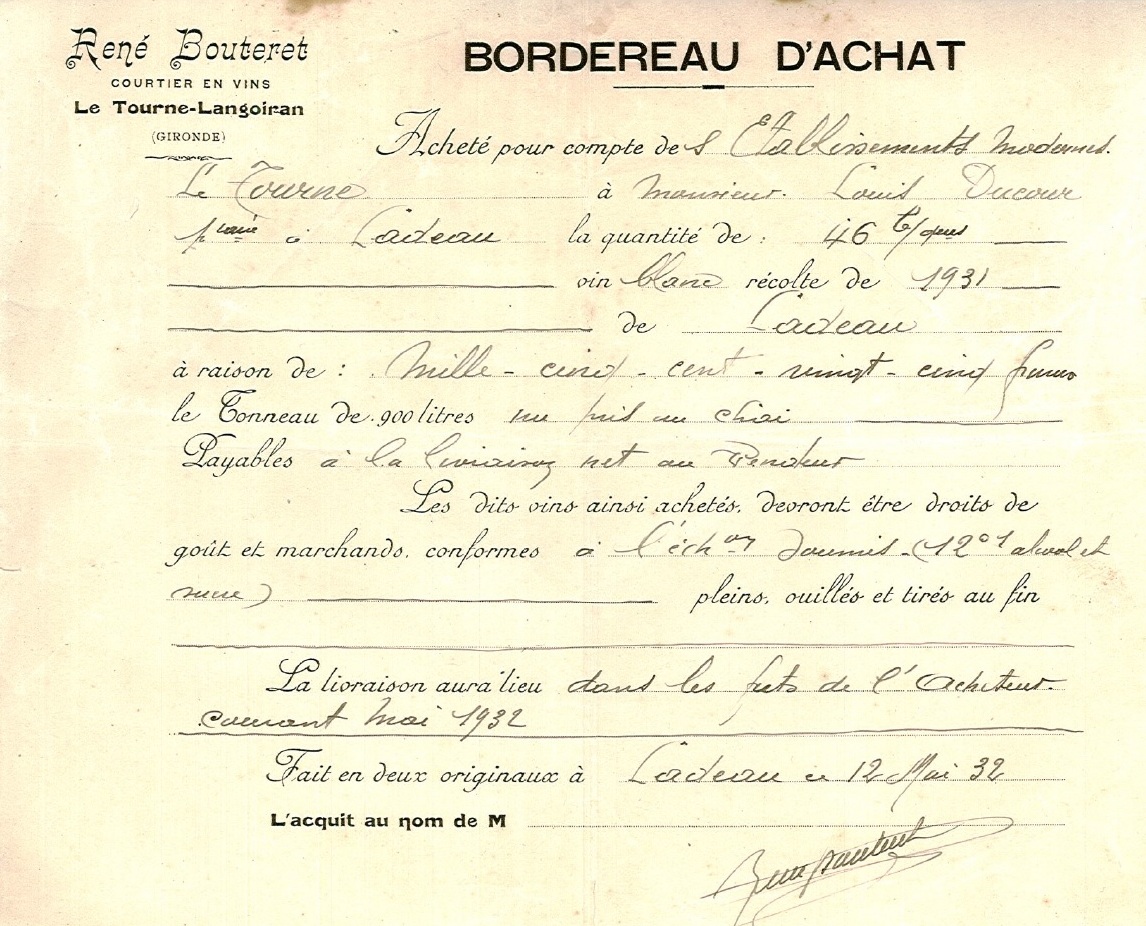 René Bouteret
COURTIER EN VINS
Le Tourne-Langoiran
(GIRONDE)
BORDEREAU D'ACHAT
Acheté pour compte de s Etablissements Modernes.
Le Tourne à Monsieur. Louis Ducour
à Ladeau la quantité de : 46
vin blanc récolte de 1931
de Ladeau
à raison de : Mille - cinq - cent - vingt - cinq francs
le Tonneau de 900 litres nu pris au chai
Payables à la livraison net au Vendeur
Les dits vins ainsi achetés, devront être droits de
goût et marchands, conformes à l'échon soumis (12°1 alcool et
sucre) pleins, ouillés et tirés au fin
La livraison aura lieu dans les futs de l'Acheteur.
courant Mai 1932
Fait en deux originaux à Ladeau le 12 Mai 32
L'acquit au nom de M